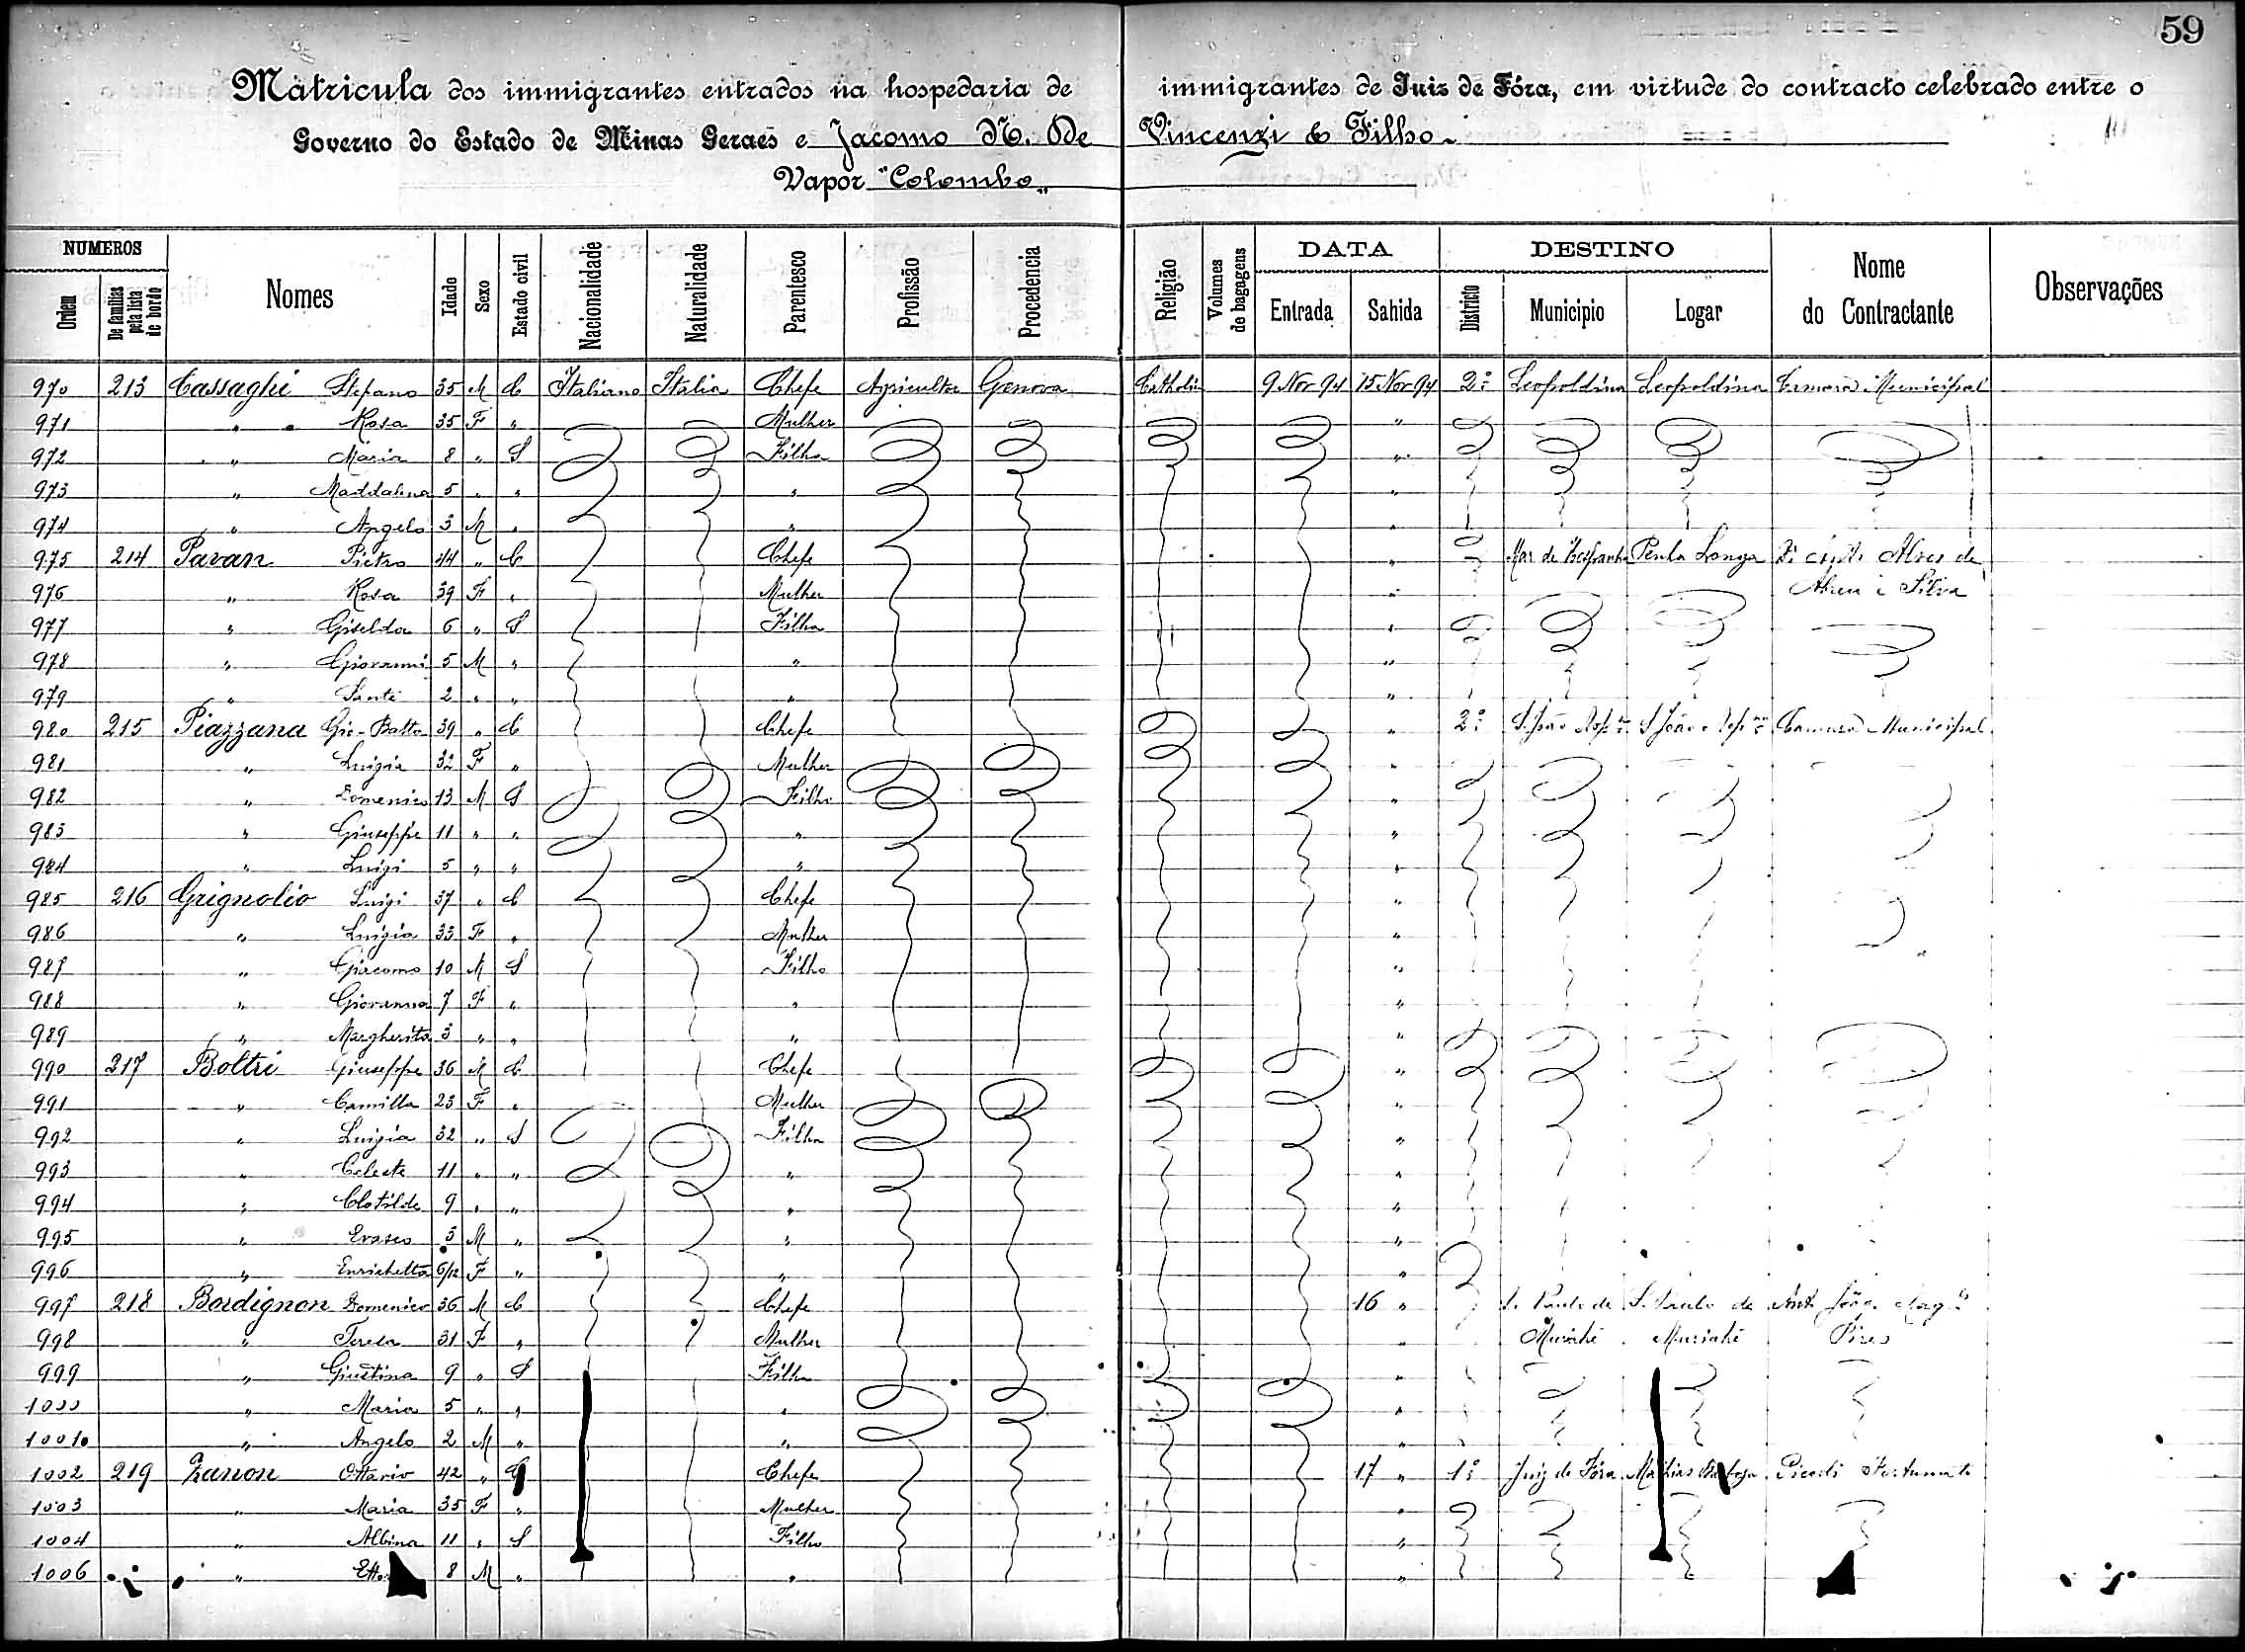 59
Matricula dos immigrantes entrados na hospedaria de immigrantes de Juiz de Fóra, em virtude do contracto celebrado entre o
Governo do Estado de Minas Geraes e Jacomo N. De Vincenzi & Filho.
Vapor "Colombo"
NUMEROS DATA DESTINO
Ordem De familias pela lista de bordo Nomes Idade Sexo Estado civil Nacionalidade Naturalidade Parentesco Profissão Procedencia Religião Volumes de bagagens Entrada Sahida Districto Municipio Logar Nome do Contractante Observações
970 213 Cassaghi Stefano 35 M C Italiano Italia Chefe Agricultor Genova Catholica 9 Nov 94 15 Nov 94 2º Leopoldina Leopoldina Camara Municipal
971 " " Rosa 35 F " Mulher "
972 " Maria 8 " S Filha "
973 " Maddalena 5 " " " "
974 " Angelo 3 M " " "
975 214 Pavan Pietro 44 " C Chefe " Mar de Hespanha Penha Longa Alves de
976 " Rosa 39 F " Mulher " Abreu e Silva
977 " Giselda 6 " S Filha "
978 " Giovanni 5 M " " "
979 " Sante 2 " " " "
980 215 Piazzana Gio-Batta 39 " C Chefe " 2º S. João S. João Camara Municipal
981 " Luigia 32 F " Mulher "
982 " Domenico 13 M S Filho "
983 " Giuseppe 11 " " " "
984 " Luigi 5 " " " "
985 216 Grignolio Luigi 37 " C Chefe "
986 " Luigia 33 F " Mulher "
987 " Giacomo 10 M S Filho "
988 " Giovanna 7 F " " "
989 " Margherita 3 " " " "
990 217 Boltri Giuseppe 36 M C Chefe "
991 " Camilla 23 F " Mulher "
992 " Luigia 32 " S Filha "
993 " Celeste 11 " " " "
994 " Clotilde 9 " " " "
995 " Evasio 3 M " " "
996 " Enrichetta 6/12 F " " "
997 218 Bordignon Domenico 36 M C Chefe 16 " S. Paulo de S. Paulo de Ant. João
998 " Teresa 31 F " Mulher " Muriahé Muriahé Pires
999 " Giustina 9 " S Filha "
1000 " Maria 5 " " " "
1001 " Angelo 2 M " " "
1002 219 Zanon Ottavio 42 " C Chefe 17 " 1º Juiz de Fóra Mathias Barbosa Picorli Fortunato
1003 " Maria 35 F " Mulher "
1004 " Albina 11 " S Filho "
1006 " 8 M " " "